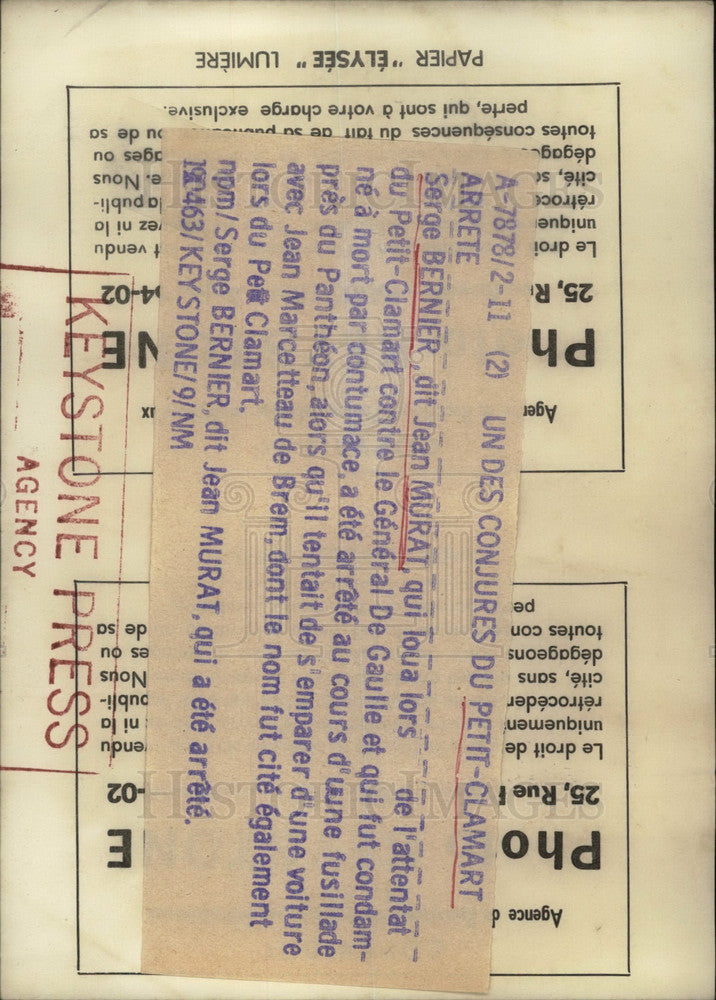 A-7878/2-11 (2) UN DES CONJURES DU PETIT-CLAMART
ARRETE
Serge BERNIER, dit Jean MURAT, qui loua lors de l'attentat
du Petit-Clamart contre le Général De Gaulle et qui fut condam-
né à mort par contumace, a été arrêté au cours d'uune fusillade
près du Panthéon, alors qu'il tentait de s'emparer d'une voiture
avec Jean Marcetteau de Brem, dont le nom fut cité également
lors du Petit Clamart.
npm/Serge BERNIER, dit Jean MURAT, qui a été arrêté.
463/KEYSTONE/9/NM
KEYSTONE PRESS
AGENCY
PAPIER "ÉLYSÉE" LUMIÈRE
Agence d
Pho E
25, Rue -02
Le droit de vendu
uniquement ni la
rétrocéder publi-
cité, sans Nous
dégageons es ou
toutes con de sa
pe
Ph NE
25, R 4-02
Le droi t vendu
uniquen vez ni la
rétrocé la publi-
cité, e. Nous
dégage ages ou
toutes conséquences du fait de sa ou de sa
perte, qui sont à votre charge exclusive.
HISTORIC IMAGES
HISTORIC IMAGES